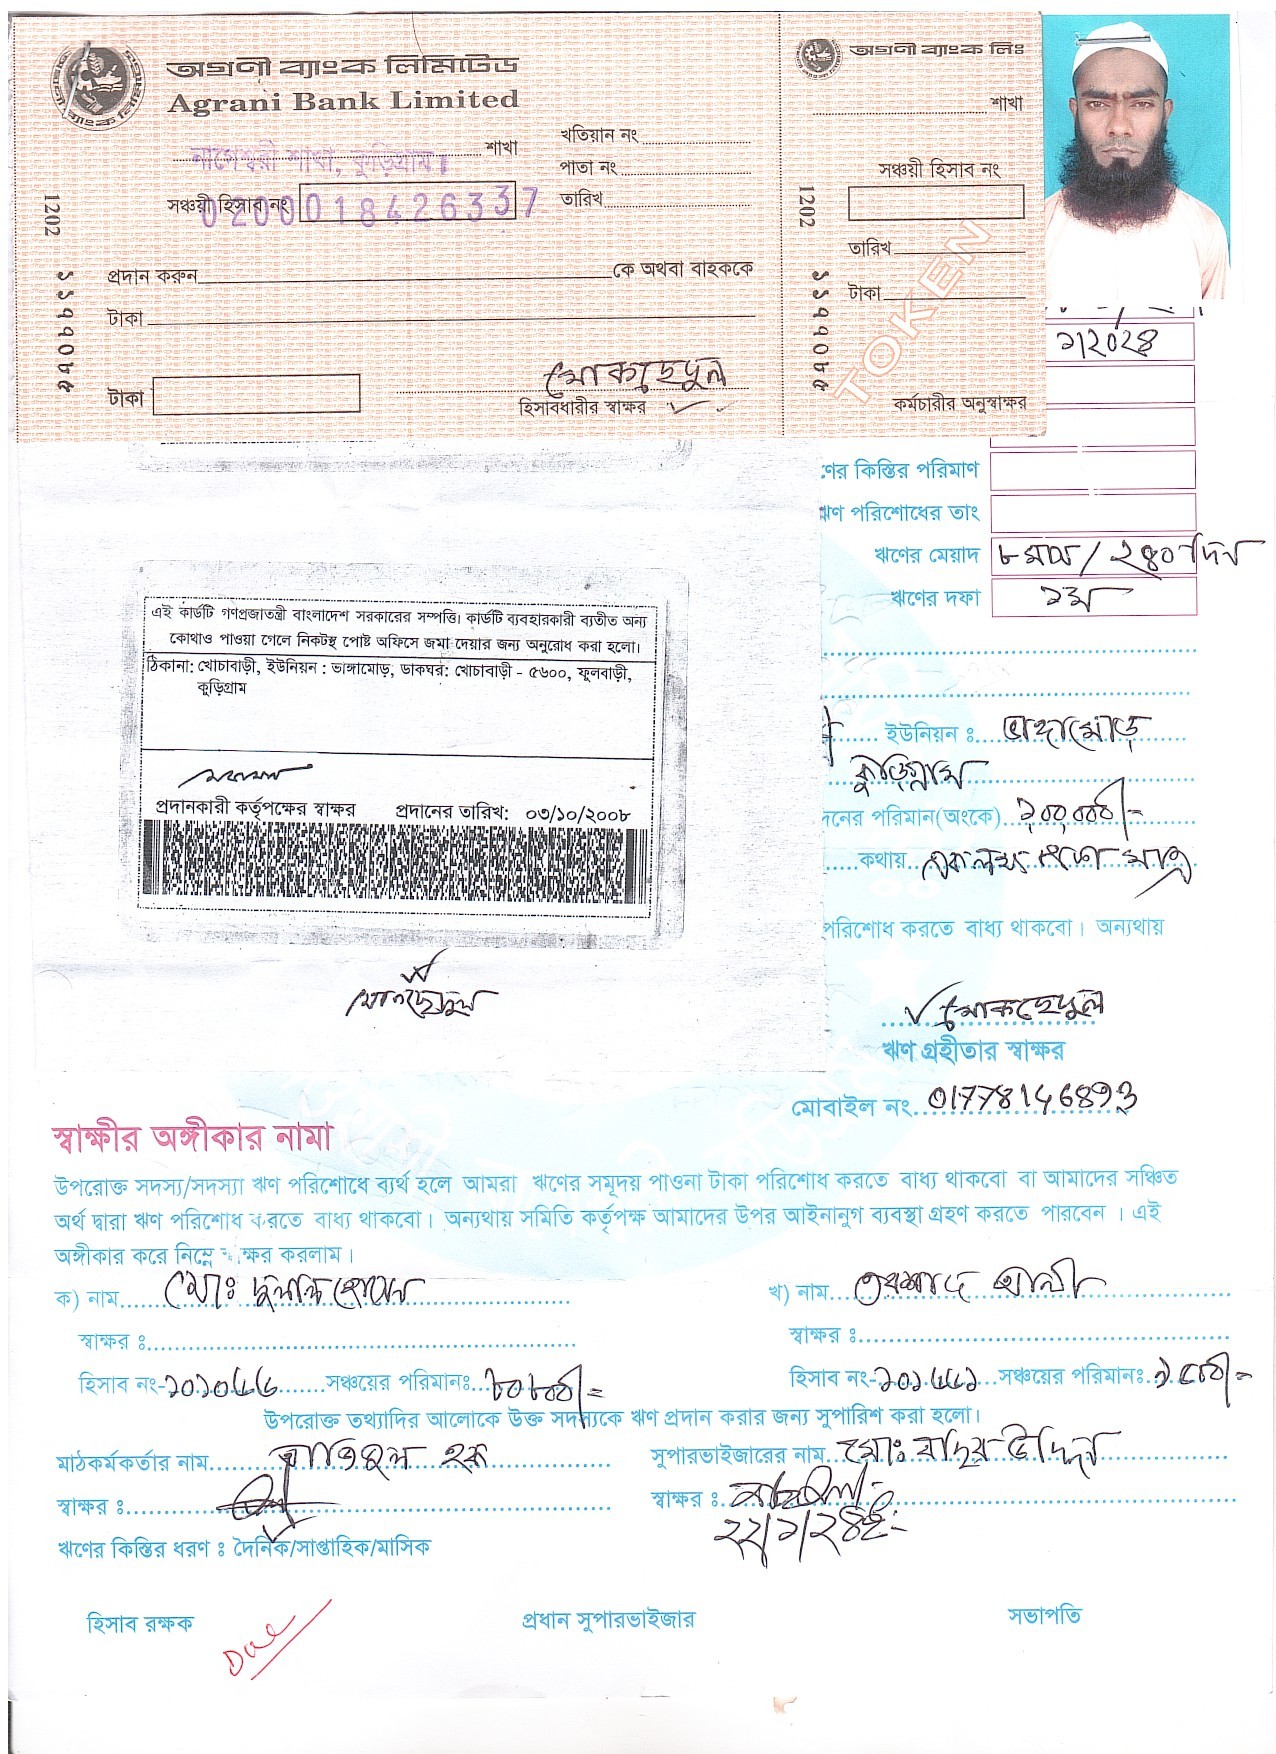 অগ্রণী ব্যাংক লিমিটেড
Agrani Bank Limited
শাখা
খতিয়ান নং
পাতা নং
সঞ্চয়ী হিসাব নং 0200018426337
তারিখ
প্রদান করুন কে অথবা বাহককে
টাকা
টাকা
মোকছেদুল
হিসাবধারীর স্বাক্ষর
1202
অগ্রণী ব্যাংক লিঃ
শাখা
সঞ্চয়ী হিসাব নং
1202
তারিখ
টাকা
TOKEN
কর্মচারীর অনুস্বাক্ষর
ণের কিস্তির পরিমাণ
ঋণ পরিশোধের তাং
ঋণের মেয়াদ ৮ মাস / ২৪০ দিন
ঋণের দফা ১ম
এই কার্ডটি গণপ্রজাতন্ত্রী বাংলাদেশ সরকারের সম্পত্তি। কার্ডটি ব্যবহারকারী ব্যতীত অন্য
কোথাও পাওয়া গেলে নিকটস্থ পোষ্ট অফিসে জমা দেয়ার জন্য অনুরোধ করা হলো।
ঠিকানা: খোচাবাড়ী, ইউনিয়ন : ভাঙ্গামোড়, ডাকঘর: খোচাবাড়ী - ৫৬০০, ফুলবাড়ী,
কুড়িগ্রাম
প্রদানকারী কর্তৃপক্ষের স্বাক্ষর প্রদানের তারিখ: ০৩/১০/২০০৮
ইউনিয়ন ঃ ভাঙ্গামোড়
কুড়িগ্রাম
দনের পরিমান(অংকে) ১,০০,০০০/-
কথায় এক লক্ষ মাত্র
পরিশোধ করতে বাধ্য থাকবো। অন্যথায়
মোকছেদুল
ঋণ গ্রহীতার স্বাক্ষর
মোবাইল নং 01778146893
স্বাক্ষীর অঙ্গীকার নামা
উপরোক্ত সদস্য/সদস্যা ঋণ পরিশোধে ব্যর্থ হলে আমরা ঋণের সমূদয় পাওনা টাকা পরিশোধ করতে বাধ্য থাকবো বা আমাদের সঞ্চিত
অর্থ দ্বারা ঋণ পরিশোধ করতে বাধ্য থাকবো। অন্যথায় সমিতি কর্তৃপক্ষ আমাদের উপর আইনানুগ ব্যবস্থা গ্রহণ করতে পারবেন । এই
অঙ্গীকার করে নিম্নে স্বাক্ষর করলাম।
ক) নাম মোঃ দুলাল হোসেন খ) নাম এরশাদ আলী
স্বাক্ষর ঃ স্বাক্ষর ঃ
হিসাব নং- সঞ্চয়ের পরিমানঃ হিসাব নং- সঞ্চয়ের পরিমানঃ
উপরোক্ত তথ্যাদির আলোকে উক্ত সদস্যকে ঋণ প্রদান করার জন্য সুপারিশ করা হলো।
মাঠকর্মকর্তার নাম হক সুপারভাইজারের নাম মোঃ উদ্দিন
স্বাক্ষর ঃ স্বাক্ষর ঃ
ঋণের কিস্তির ধরণ ঃ দৈনিক/সাপ্তাহিক/মাসিক
হিসাব রক্ষক প্রধান সুপারভাইজার সভাপতি